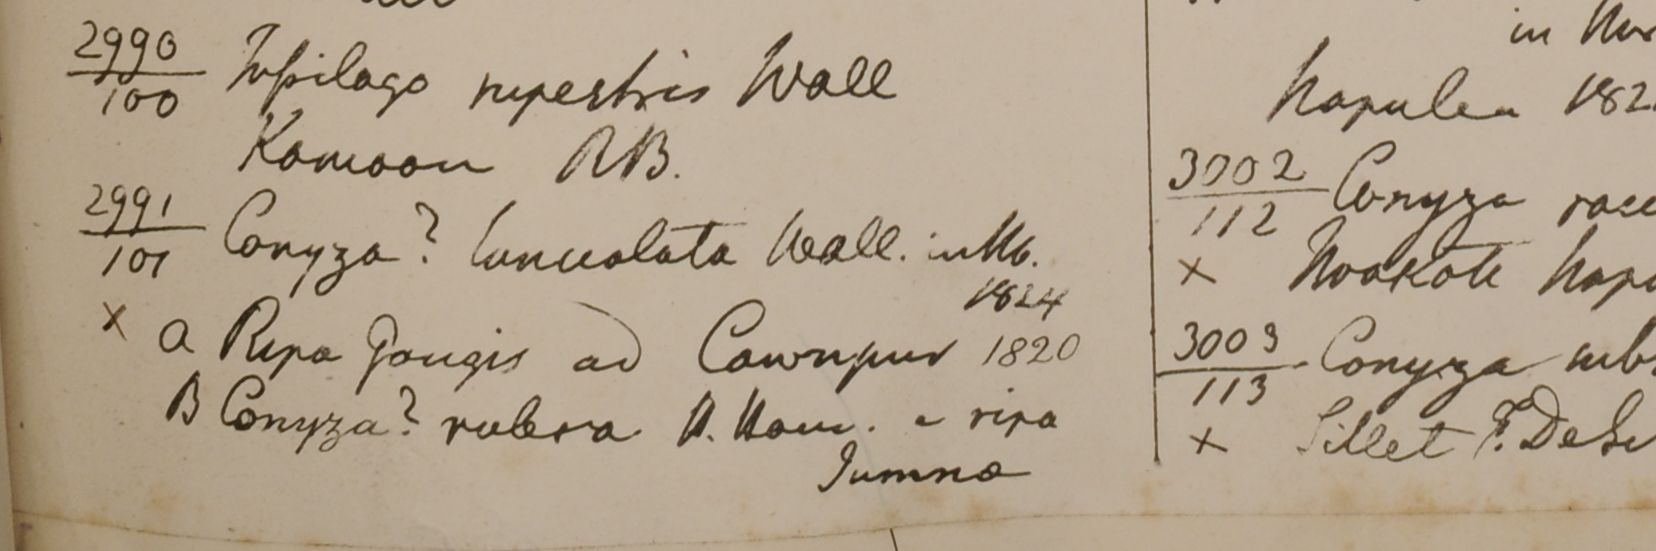 2990
100 Tussilago rupestris Wall
Kamoon RB.
2991
101 Conyza? lanceolata Wall. in Hb.
1824
× a Ripa Gangis ad Cawnpur 1820
B Conyza? rubera H. Ham. e ripa
Jumna
in
Napulea 182
3002
112 Conyza
× Noakote Napa
3003
113 Conyza
× Sillet F. De